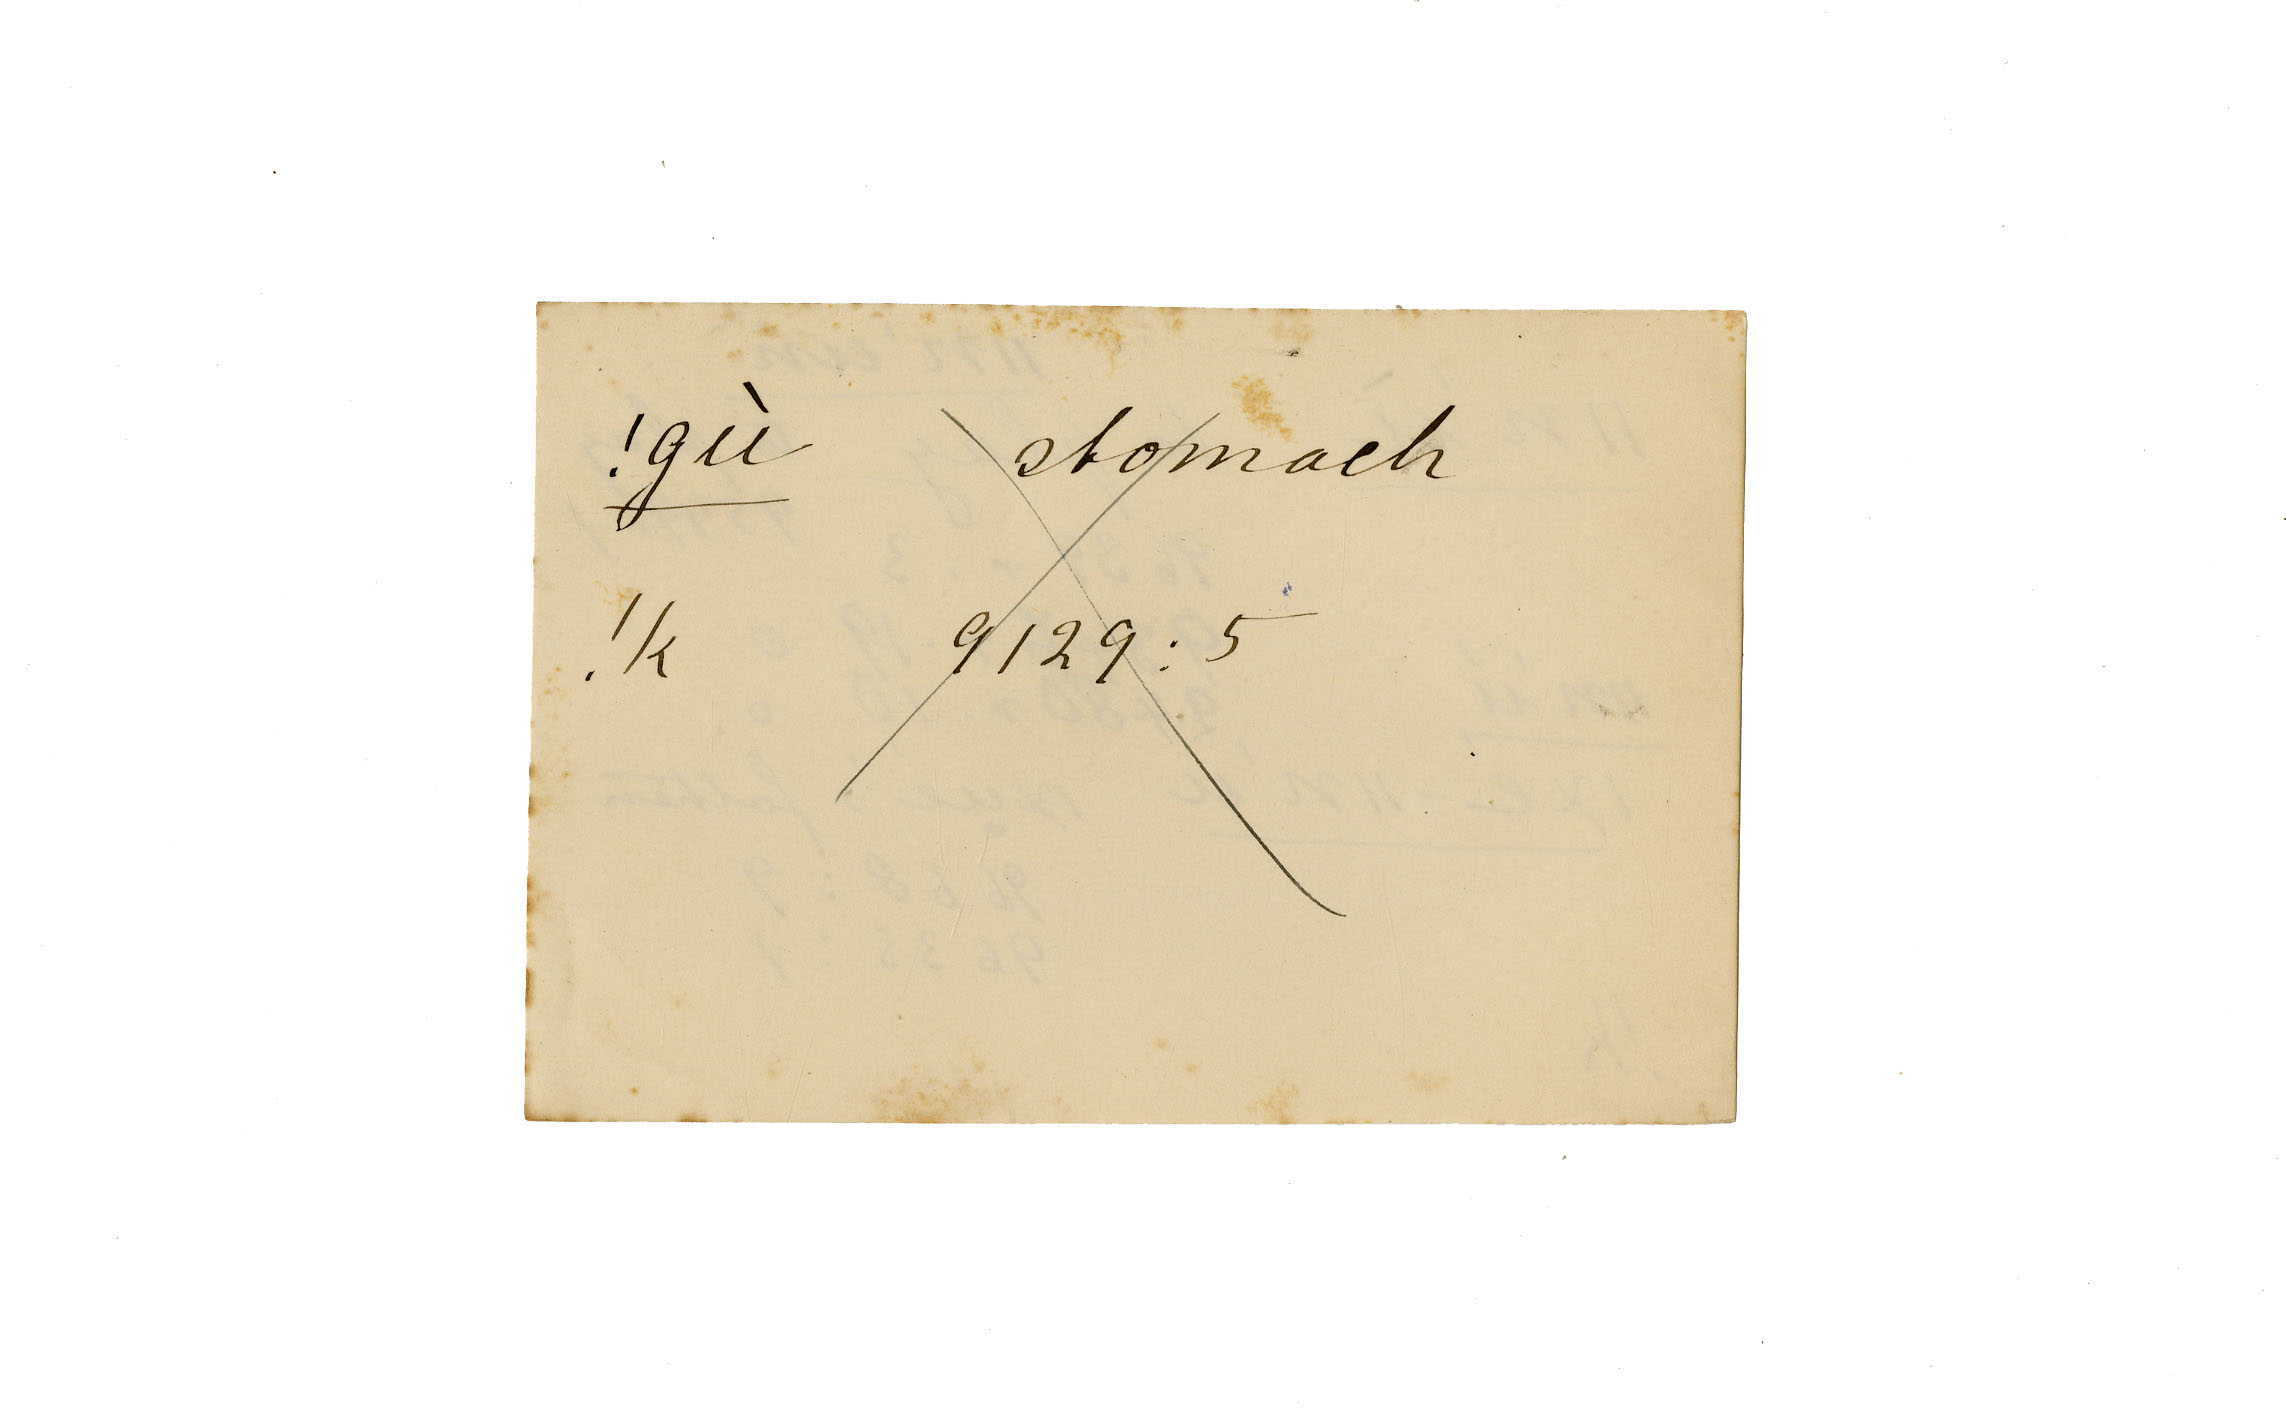 !gù stomach
!k 9129:5